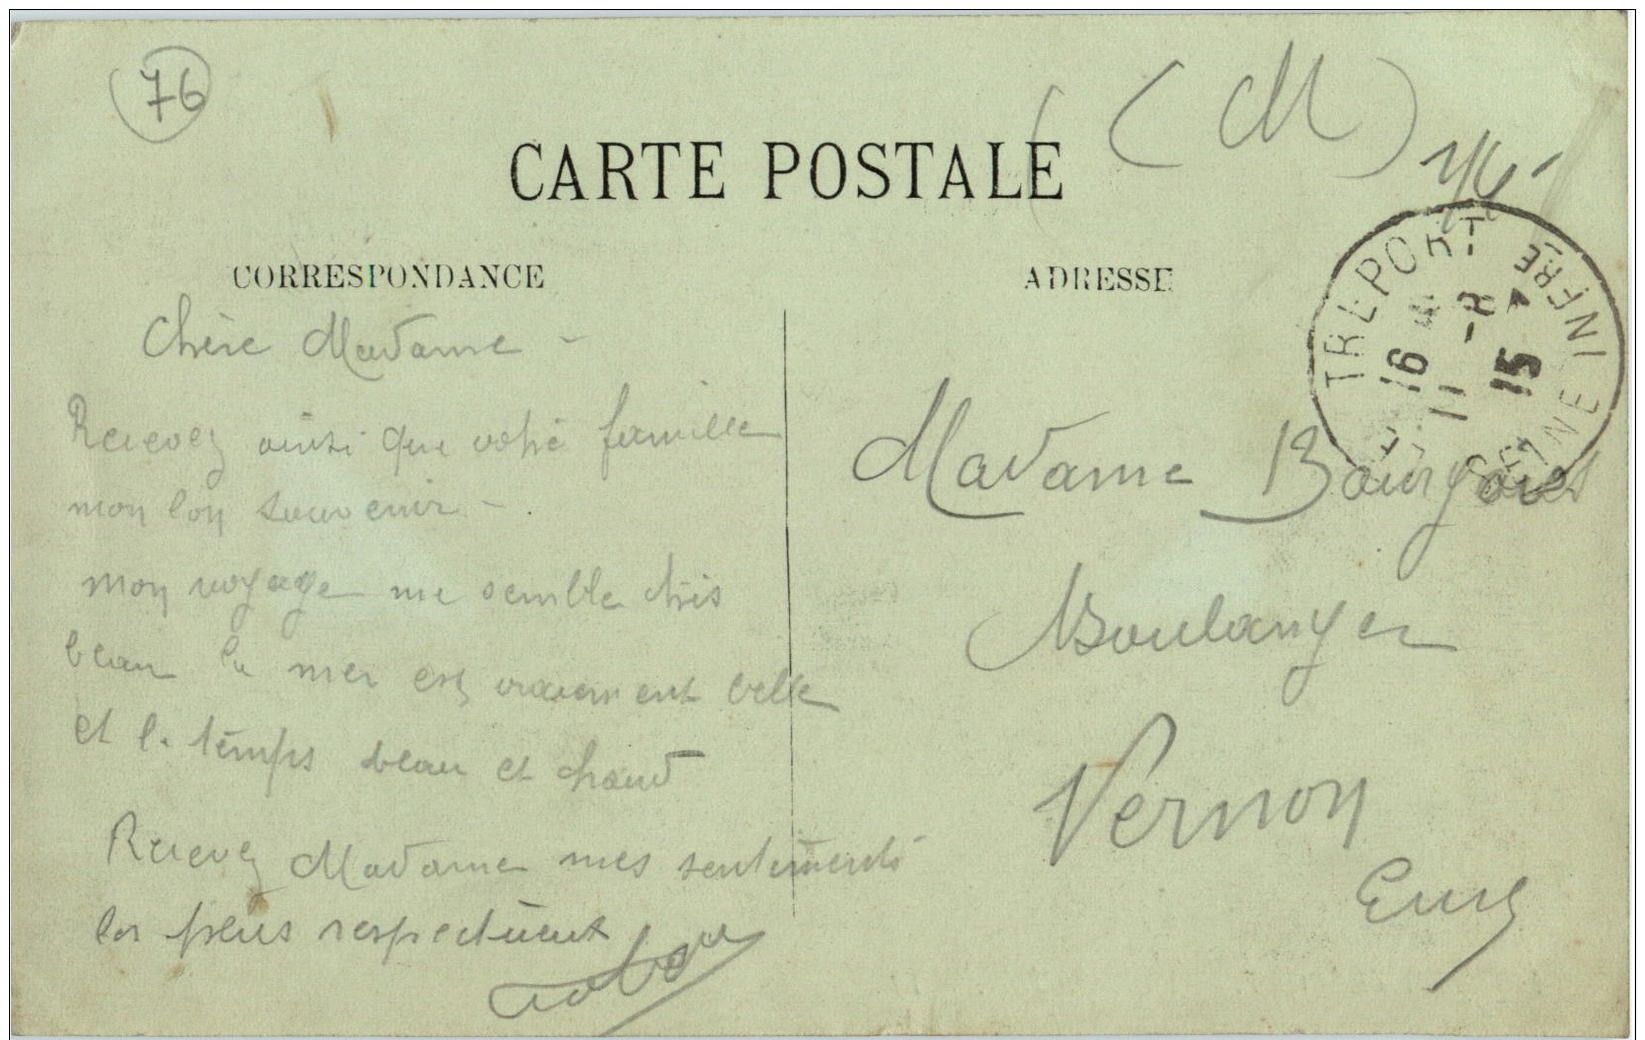 76
(M)
CARTE POSTALE
CORRESPONDANCE
ADRESSE
LE TREPORT SEINE INFRE
16
11 - 8
15
Chère Madame -
Recevez ainsi que votre famille
mon bon souvenir - .
mon voyage me semble très
beau la mer est vraiment belle
et le temps beau et chaud
Recevez Madame mes sentiments
les plus respectueux
Madame
Boulanger
Vernon
Eure